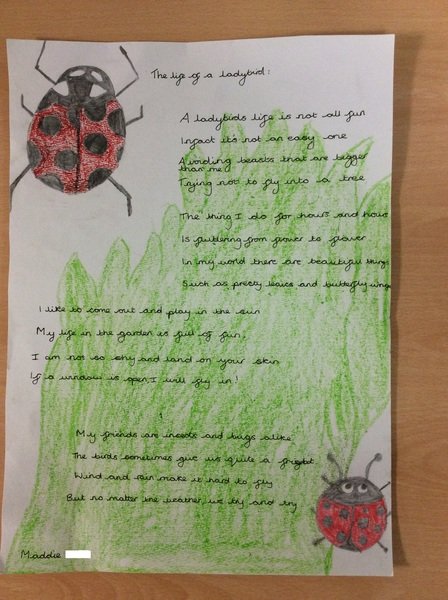 The life of a ladybird:
A ladybirds life is not all fun
Infact it's not an easy one
Avoiding beasts that are bigger
than me
Trying not to fly into a tree
The thing I do for hours and hours
Is fluttering from flower to flower
In my world there are beautiful things
Such as pretty leaves and butterfly wings
I like to come out and play in the sun
My life in the garden is full of fun.
I am not so shy and land on your skin
If a window is open, I will fly in!
My friends are insects and bugs alike,
The birds sometimes give us quite a fright
Wind and rain make it hard to fly
But no matter the weather we try and try
Maddie